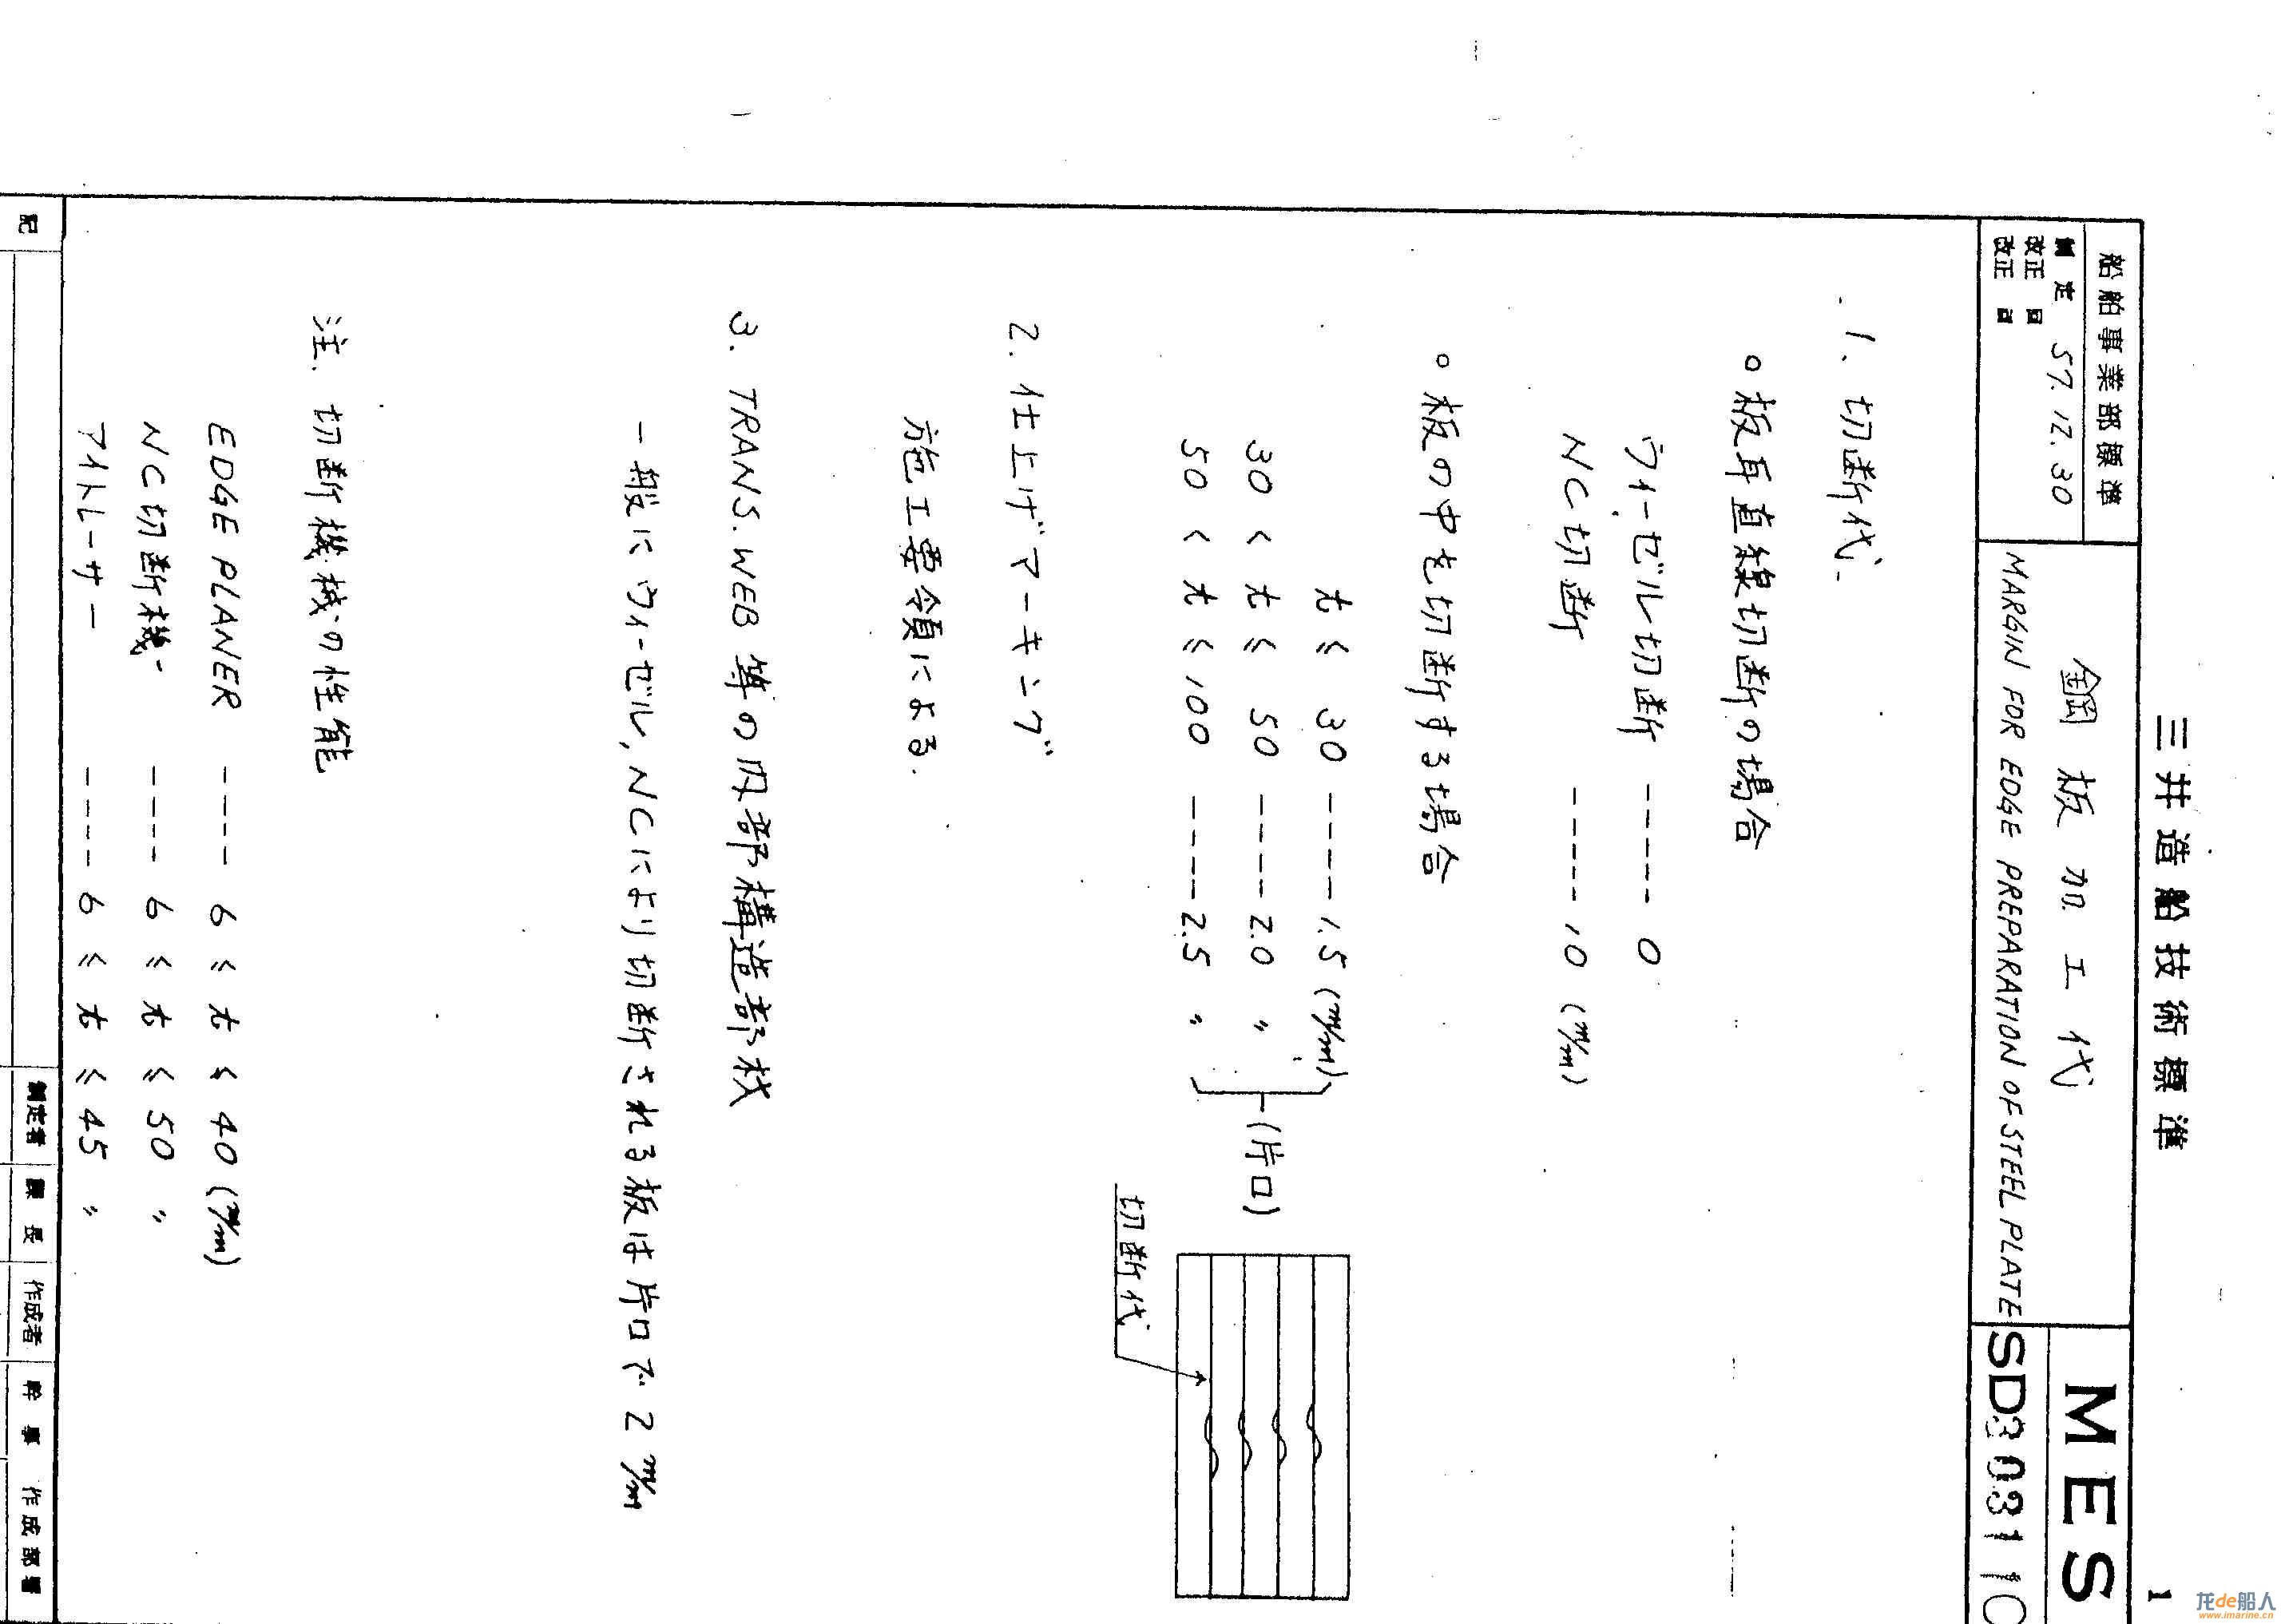 三井造船技術標準
1
船舶事業部標準
制定 57.12.30
改正 回
改正
鋼板加工代
MARGIN FOR EDGE PREPARATION OF STEEL PLATE
MES
1. 切断代.
○ 板耳直線切断の場合
ウィーゼル切断 ----- 0
NC切断 ----- 10 (m/m)
○ 板の中を切断する場合
t ≤ 30 ---- 1.5 (m/m)
30 < t ≤ 50 ---- 2.0 〃
50 < t ≤ 100 ---- 2.5 〃
(片口)
切断代
2. 仕上げマーキング
施工要領による.
3. TRANS. WEB 等の内部構造部材
一般にウィーゼル, NCにより切断される板は片口で 2 m/m
注. 切断機械の性能
EDGE PLANER ---- 6 ≤ t ≤ 40 (m/m)
NC切断機 ---- 6 ≤ t ≤ 50 〃
アイトレーサー ---- 6 ≤ t ≤ 45 〃
記
制定者 課長 作成者 幹事 作成部署
龙de船人
www.imarine.cn